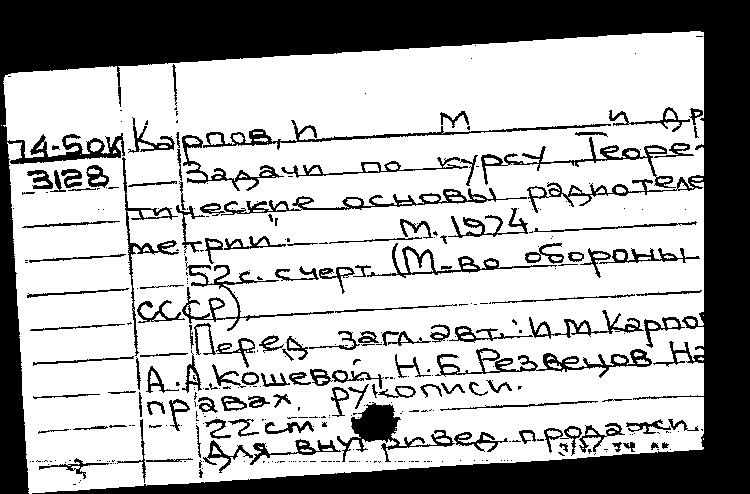 74-50К Карпов, И М и др
3128 Задачи по курсу „Теоре-
тические основы радиотеле
метрии". М., 1974.
52с. с черт. (М-во обороны
СССР).
Перед загл. авт.: И М Карпо
А. А. Кошевой, Н. Б. Резвецов На
правах рукописи.
22 см.
Для внутривед. продажи